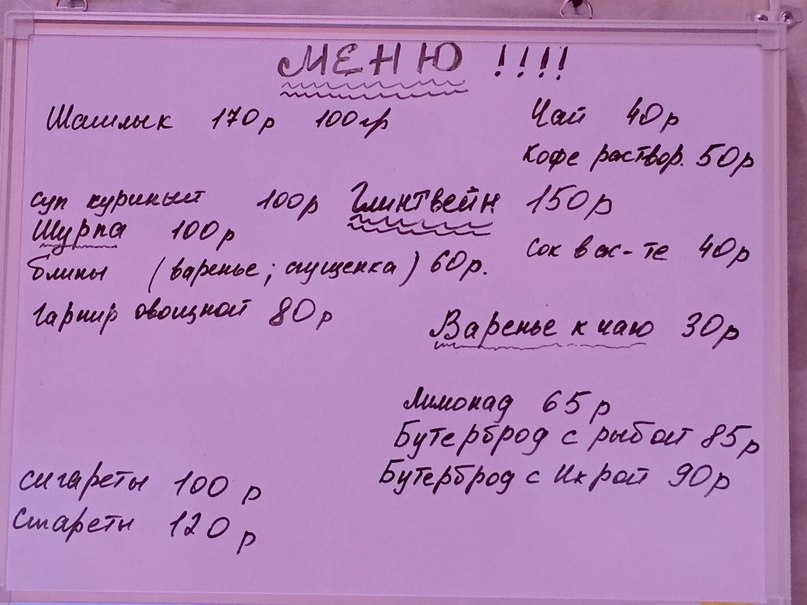 МЕНЮ !!!!
Шашлык 170р 100гр
Чай 40р
Кофе раствор. 50р
суп куриный 100р
Глинтвейн 150р
Шурпа 100р
Сок в ас-те 40р
блины (варенье; сгущенка) 60р.
гарнир овощной 80р
Варенье к чаю 30р
Лимонад 65р
Бутерброд с рыбой 85р
Бутерброд с Икрой 90р
сигареты 100р
Сигареты 120р